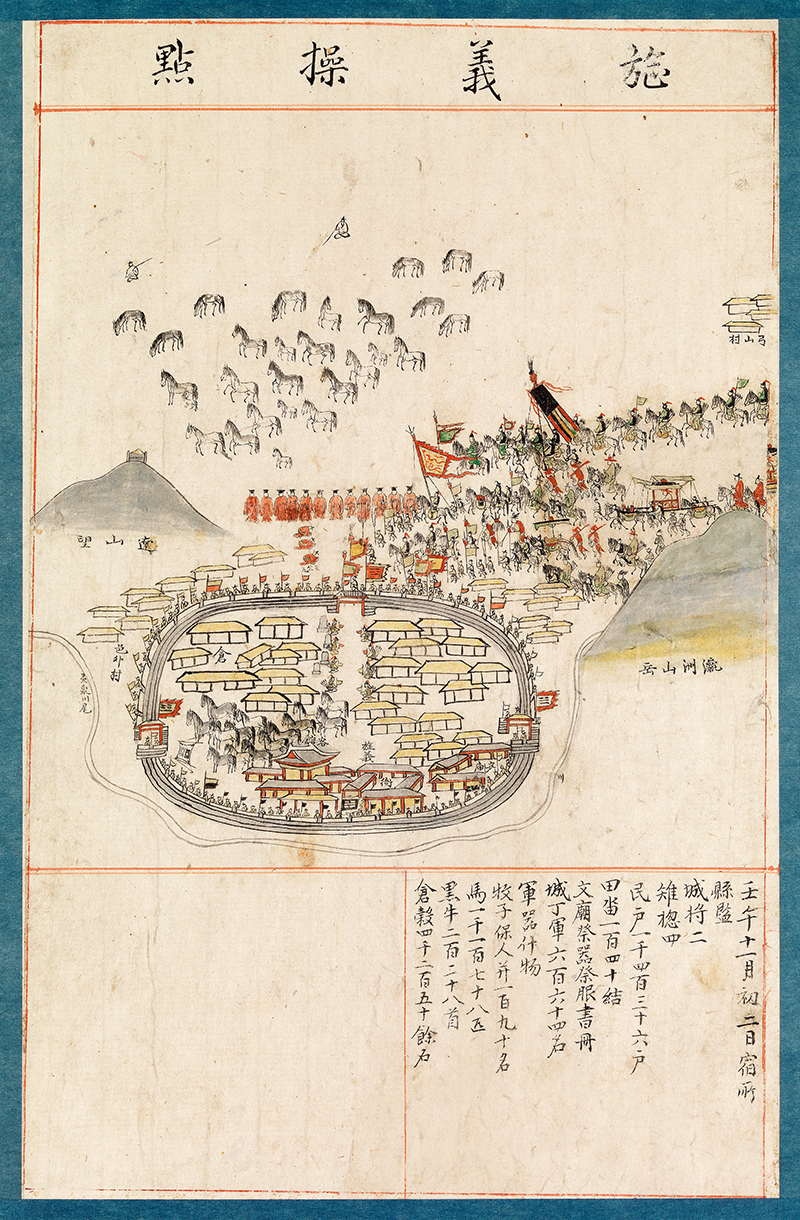 旌義操點
弓山村
達山望
瀛洲山岳
邑外村
倉
旌義
衙
壬午十一月初二日宿所
縣監
城將二
雉摠四
民戶一千四百三十六戶
田畓一百四十結
文廟祭器祭服書冊
城丁軍六百六十四名
軍器什物
牧子保人并一百九十名
馬一千一百七十八匹
黑牛二百二十八首
倉穀四千二百五十餘石